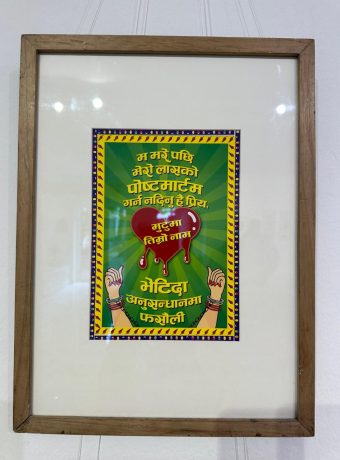 म मरे पछि
मेरो लासको
पोष्टमार्टम
गर्न नदिनू है प्रिय,
मुटुमा
तिम्रो नाम
भेटिदा
अनुसन्धानमा
फसौली